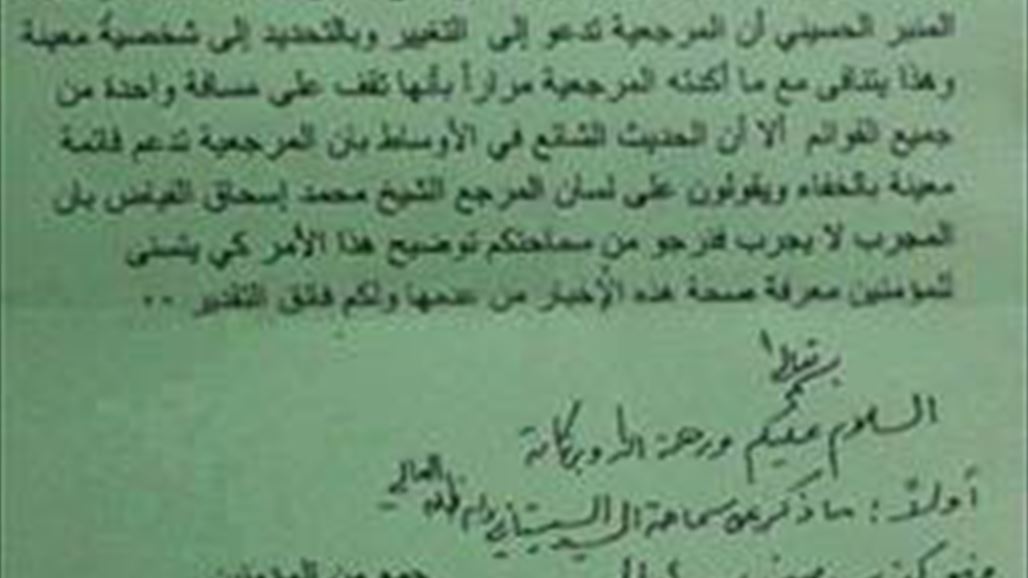 المنبر الحسيني أن المرجعية تدعو إلى التغيير وبالتحديد إلى شخصية معينة
وهذا يتنافى مع ما أكدته المرجعية مراراً بأنها تقف على مسافة واحدة من
جميع القوائم ألا أن الحديث الشائع في الأوساط بان المرجعية تدعم قائمة
معينة بالخفاء ويقولون على لسان المرجع الشيخ محمد إسحاق الفياض بأن
المجرب لا يجرب فنرجو من سماحتكم توضيح هذا الأمر كي يتسنى
للمؤمنين معرفة صحة هذه الأخبار من عدمها ولكم فائق التقدير ..
السلام عليكم ورحمة الله وبركاته
أولاً : ما ذكر عن سماحة السيد السيستاني دام ظله العالي
جمع من المؤمنين